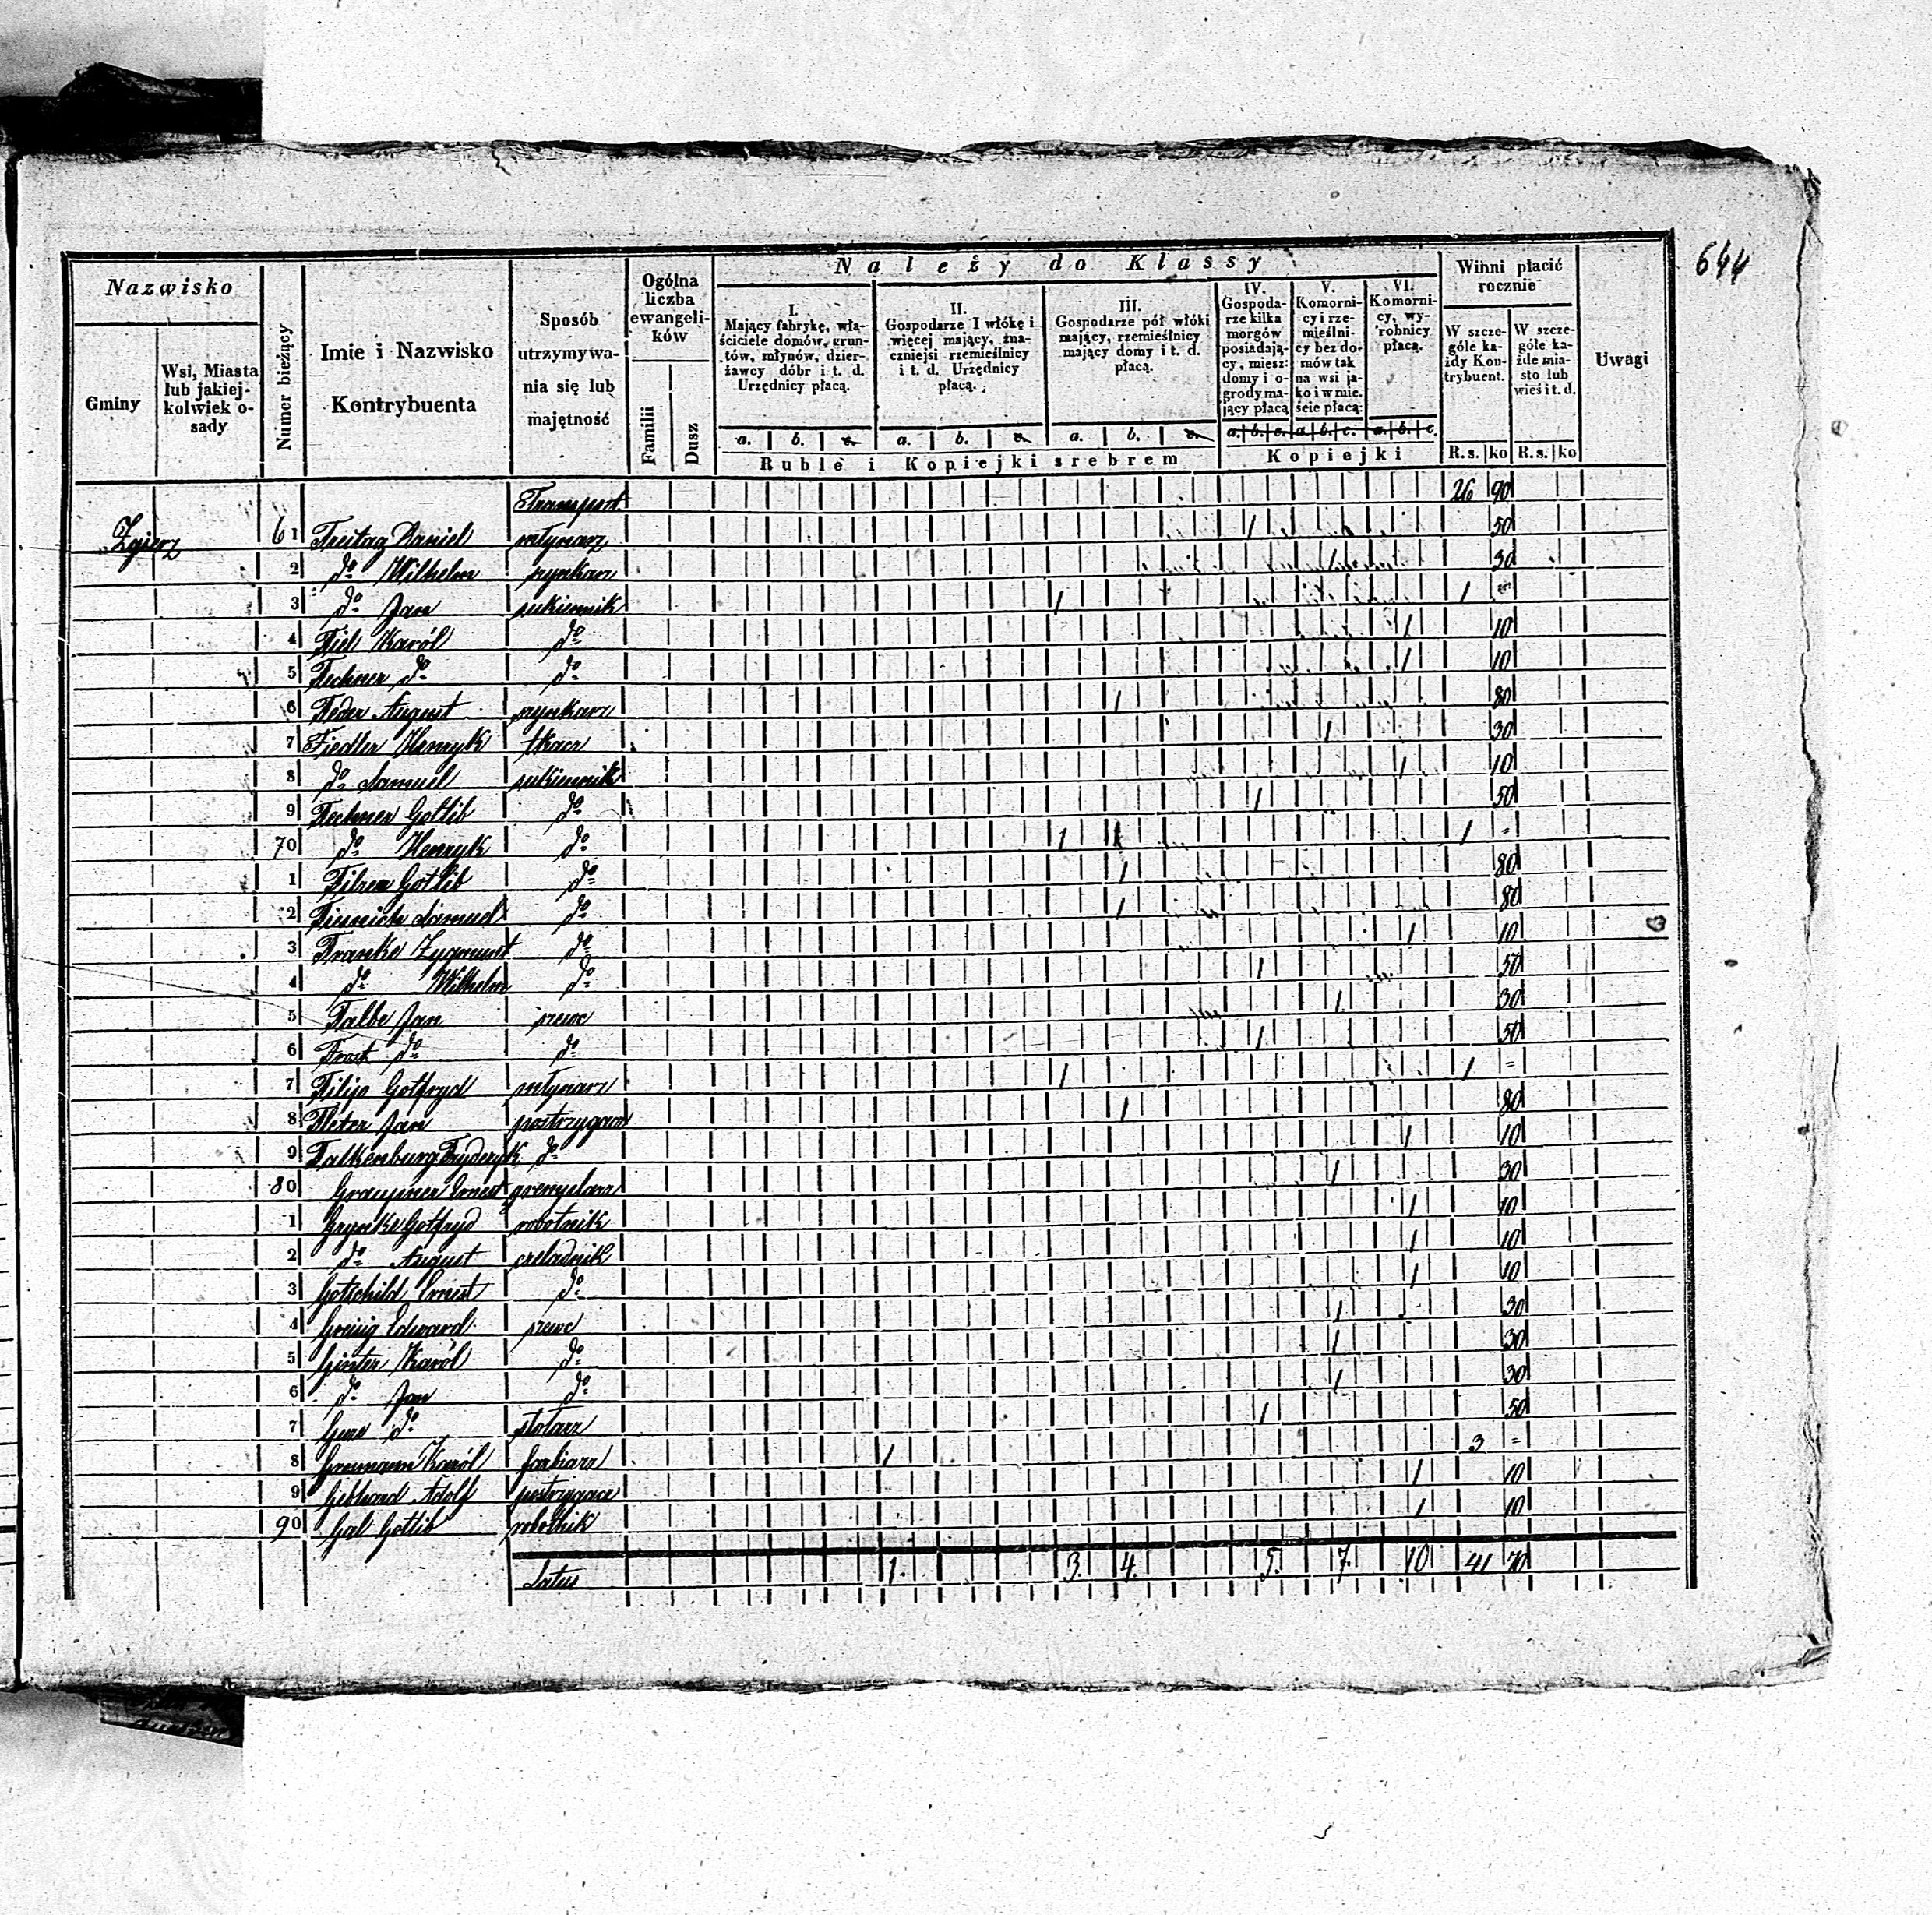 644
Nazwisko
Gminy
Wsi, Miasta lub jakiej-kolwiek o-sady
Numer bieżący
Imie i Nazwisko Kontrybuenta
Sposób utrzymywa-nia się lub majętność
Ogólna liczba ewangeli-ków
Familii
Dusz
Należy do Klassy
I. Mający fabrykę, wła-ściciele domów, grun-tów, młynów, dzier-żawcy dóbr i t. d. Urzędnicy płacą.
II. Gospodarze I włókę i więcej mający, zna-czniejsi rzemieślnicy i t. d. Urzędnicy płacą.
III. Gospodarze pół włóki mający, rzemieślnicy mający domy i t. d. płacą.
IV. Gospoda-rze kilka morgów posiadają-cy, miesz: domy i o-grody ma-jący płacą
V. Komorni-cy i rze-mieślni-cy bez do-mów tak na wsi ja-ko i w mie-ście płacą:
VI. Komorni-cy, wy-robnicy płacą.
a. b. c. a. b. c. a. b. c. a. b. c. a. b. c. a. b. c.
Ruble i Kopiejki srebrem
Kopiejki
Winni płacić rocznie
W szcze-góle ka-żdy Kon-trybuent.
W szcze-góle ka-żde mia-sto lub wieś i t. d.
R.s. ko R.s. ko
Uwagi
Transport 26 90
Zgierz 61 Freitag Daniel młynarz 1 50
2 do Wilhelm 1 30
3 do Jan sukiennik 1 1 =
4 Fiel Karól do 1 10
5 Fechner do do 1 10
6 Feder August 1 80
7 Fiedler Henryk tkacz 1 30
8 do Samuel sukiennik 1 10
9 Fechner Gotlib do 1 50
70 do Henryk do 1 1 1 =
1 Gotlib do 1 80
2 Samuel do 1 80
3 Franke Zygmunt do 1 10
4 do Wilhelm do 1 50
5 Falbe Jan szewc 1 30
6 Frost do do 1 50
7 Gotfryd młynarz 1 1 =
8 Jan postrzygacz 1 80
9 Falkenburg Fryderyk do 1 10
80 Graupner Ernest gremplarz 1 30
1 Gotfryd robotnik 1 10
2 do August czeladnik 1 10
3 Gotschild Ernest do 1 10
4 Edward szewc 1 30
5 Ginter Karól do 1 30
6 do Jan do 1 30
7 do stolarz 1 50
8 Karól farbiarz 1 3 =
9 Gebhard Adolf postrzygacz 1 10
90 Gal Gotlib robotnik 1 10
Latus 1. 3. 4. 5. 7. 10 41 70